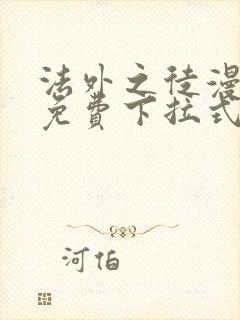 法外之徒漫
免費下拉式
河伯